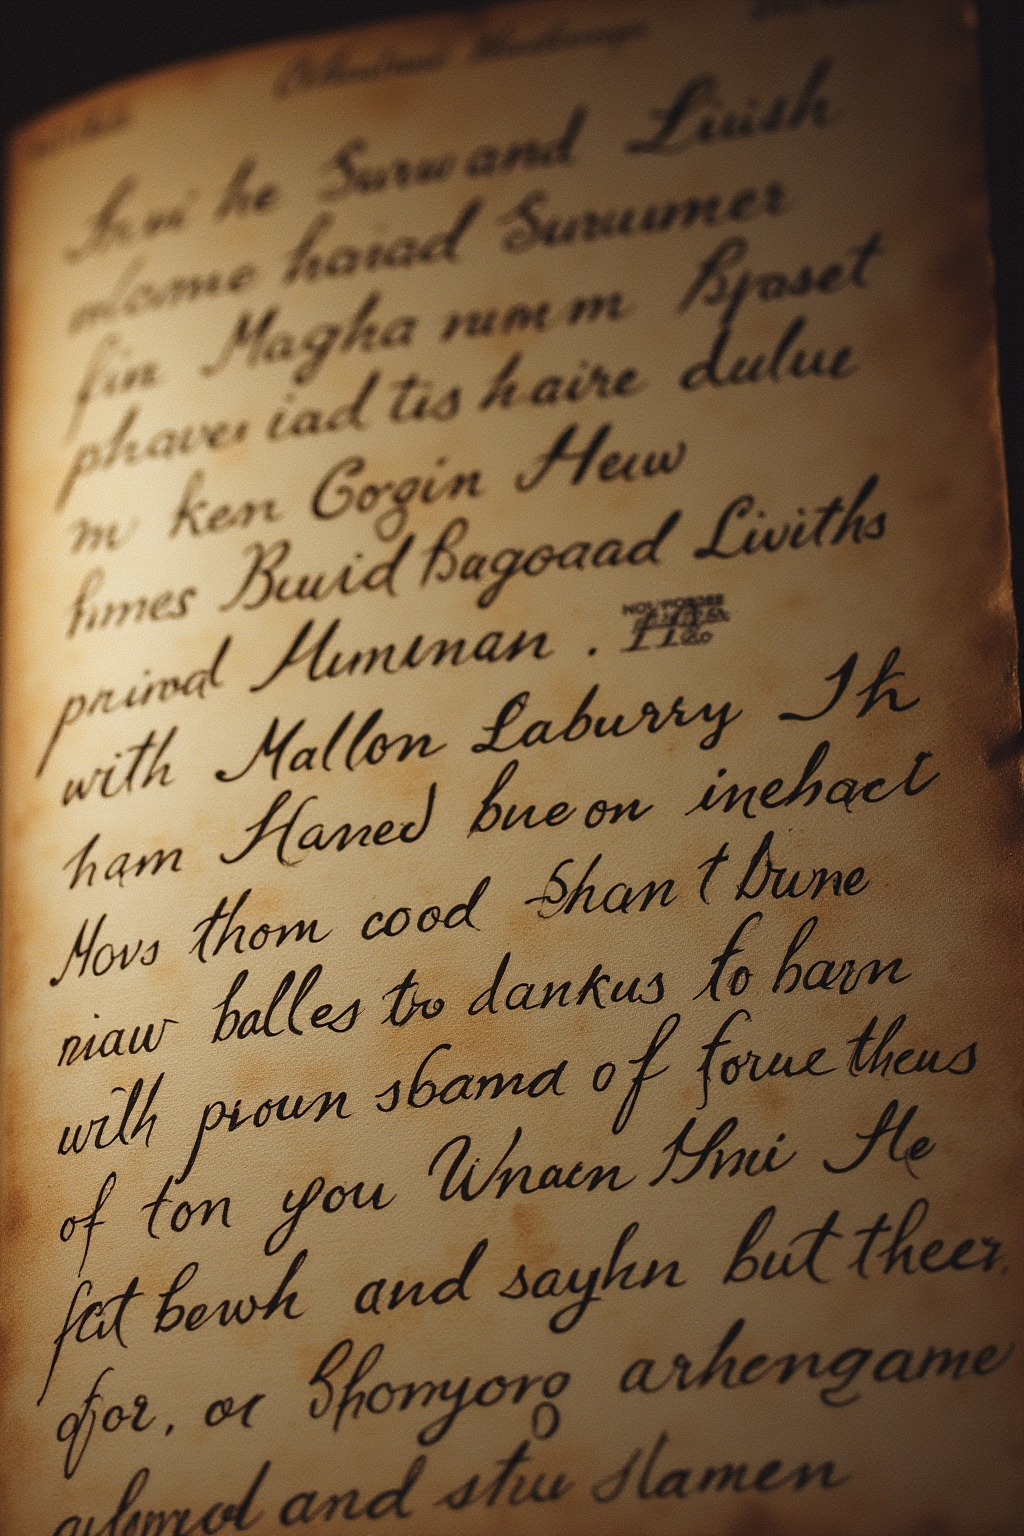 he Surwand Liuish
haiad Suruumer
fin Magha numm Bpaset
phaves iad tis haire dulue
m ken Gogin Heuw
himes Buuid Bagoaad Liviths
prirod Humenan .
with Mallon Laburry Ih
ham Haned bueon inehact
Hovs thom cood Shan t Dune
niaw balles to dankus to barn
with proun sbama of forue theus
of ton you Wnaen Hmi He
fat bewh and sayhn but theer.
for, or Shonyoro arhengame
and stuu slamen